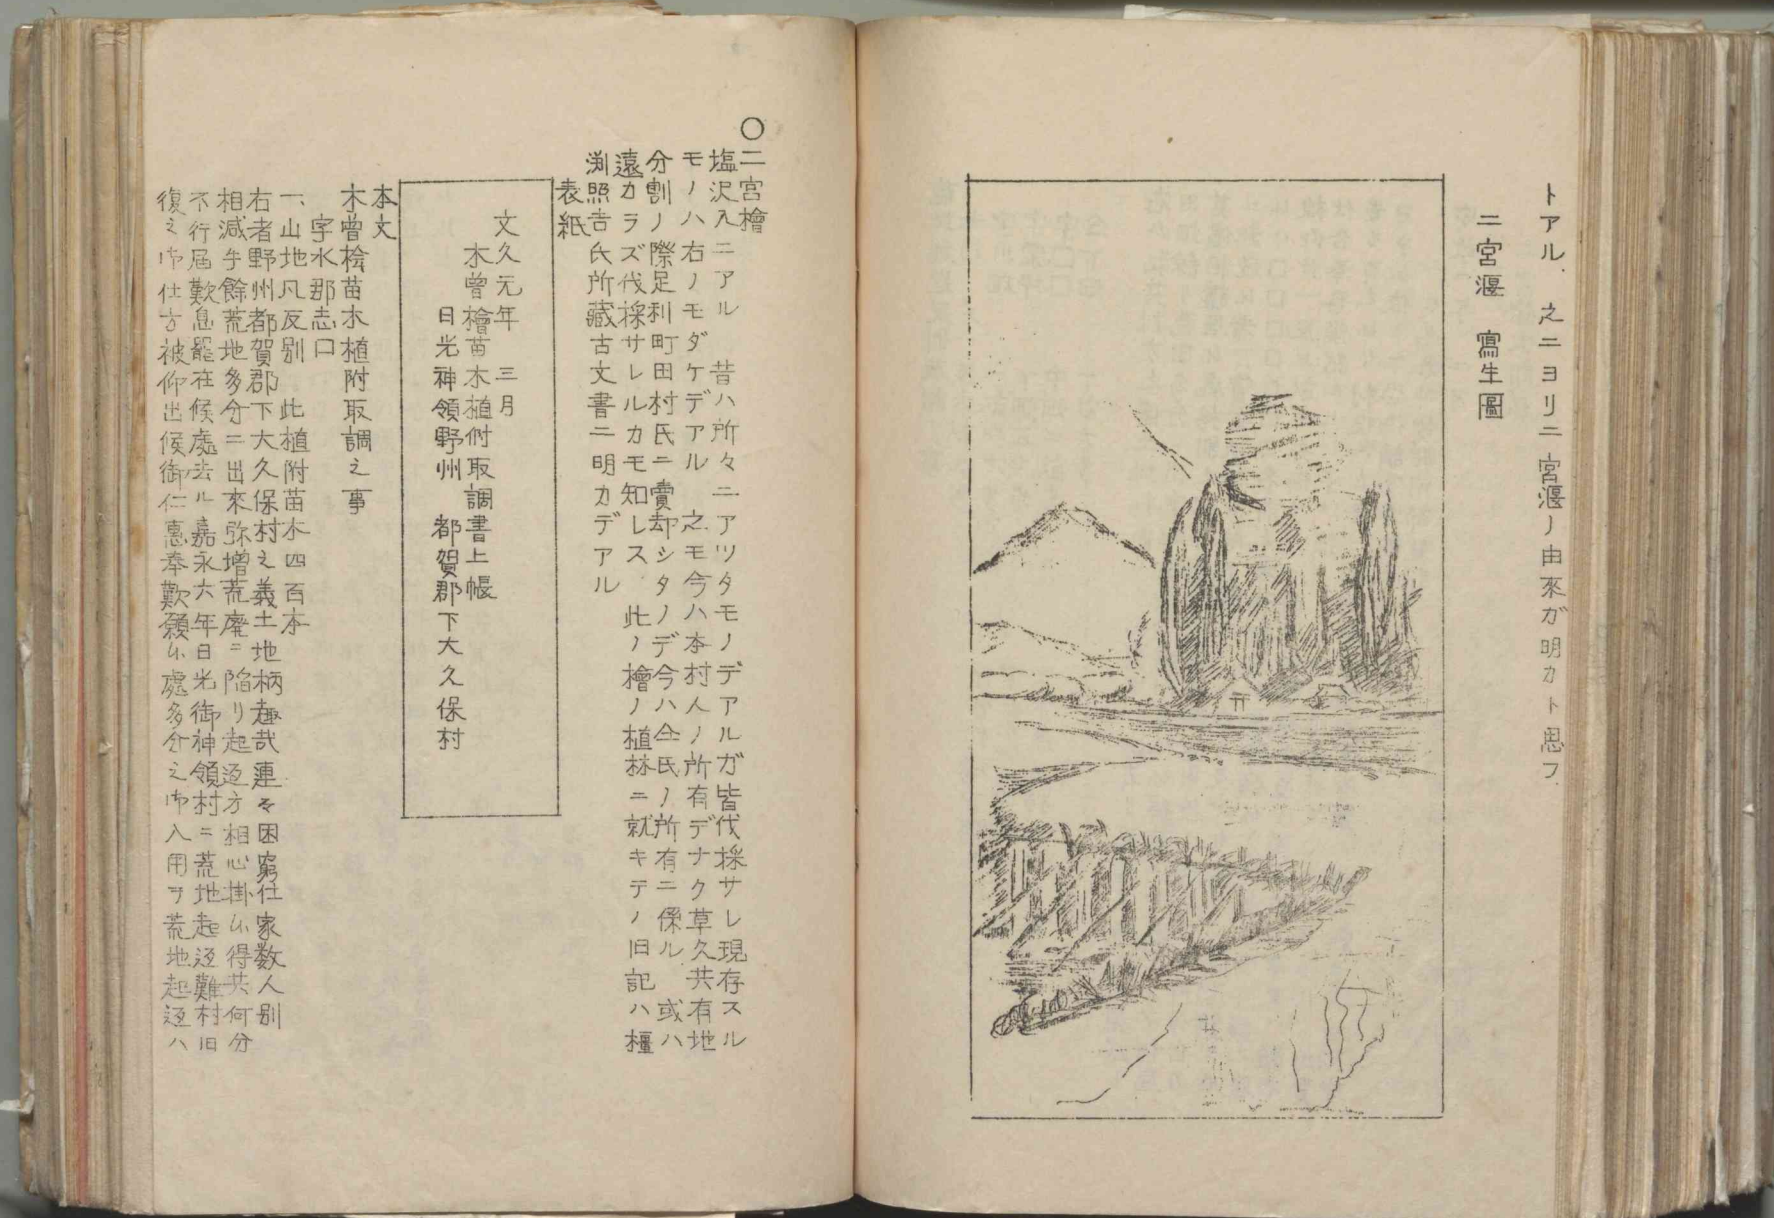 トアル、之ニヨリ二宮溷ノ由來ガ明カト思フ
二宮溷 寫生圖
〇二宮檜
塩沢入ニアル 昔ハ所々ニアツタモノデアルガ皆伐採サレ現存スル
モノハ右ノモダケデアル 之モ今ハ本村人ノ所有デナク草久共有地
分割ノ際足利町田村氏ニ賣却シタノデ今ハ仝氏ノ所有ニ係ル、或ハ
遠カラズ伐採サレルカモ知レス 此ノ檜ノ植林ニ就キテノ旧記ハ橿
渕照吉氏所藏古文書ニ明カデアル
表紙
文久元年 三月
木曽檜苗木植附取調書上帳
日光神領野州 都賀郡下大久保村
本文
木曽桧苗木植附取調之事
字水郡志口
一、山地凡反别 此植附苗木四百本
右者野州都賀郡下大久保村之義土地柄趣哉連々困窮仕家数人别
相減手餘荒地多分ニ出來弥増荒廃ニ陥リ起返方相心掛ㇺ得共何分
不行届歎息罷在候處去ル嘉永六年日光御神領村ニ荒地起返難村旧
復之御仕方被仰出候御仁惠奉歎願ㇺ處多分之御入用ヲ荒地起返ハ